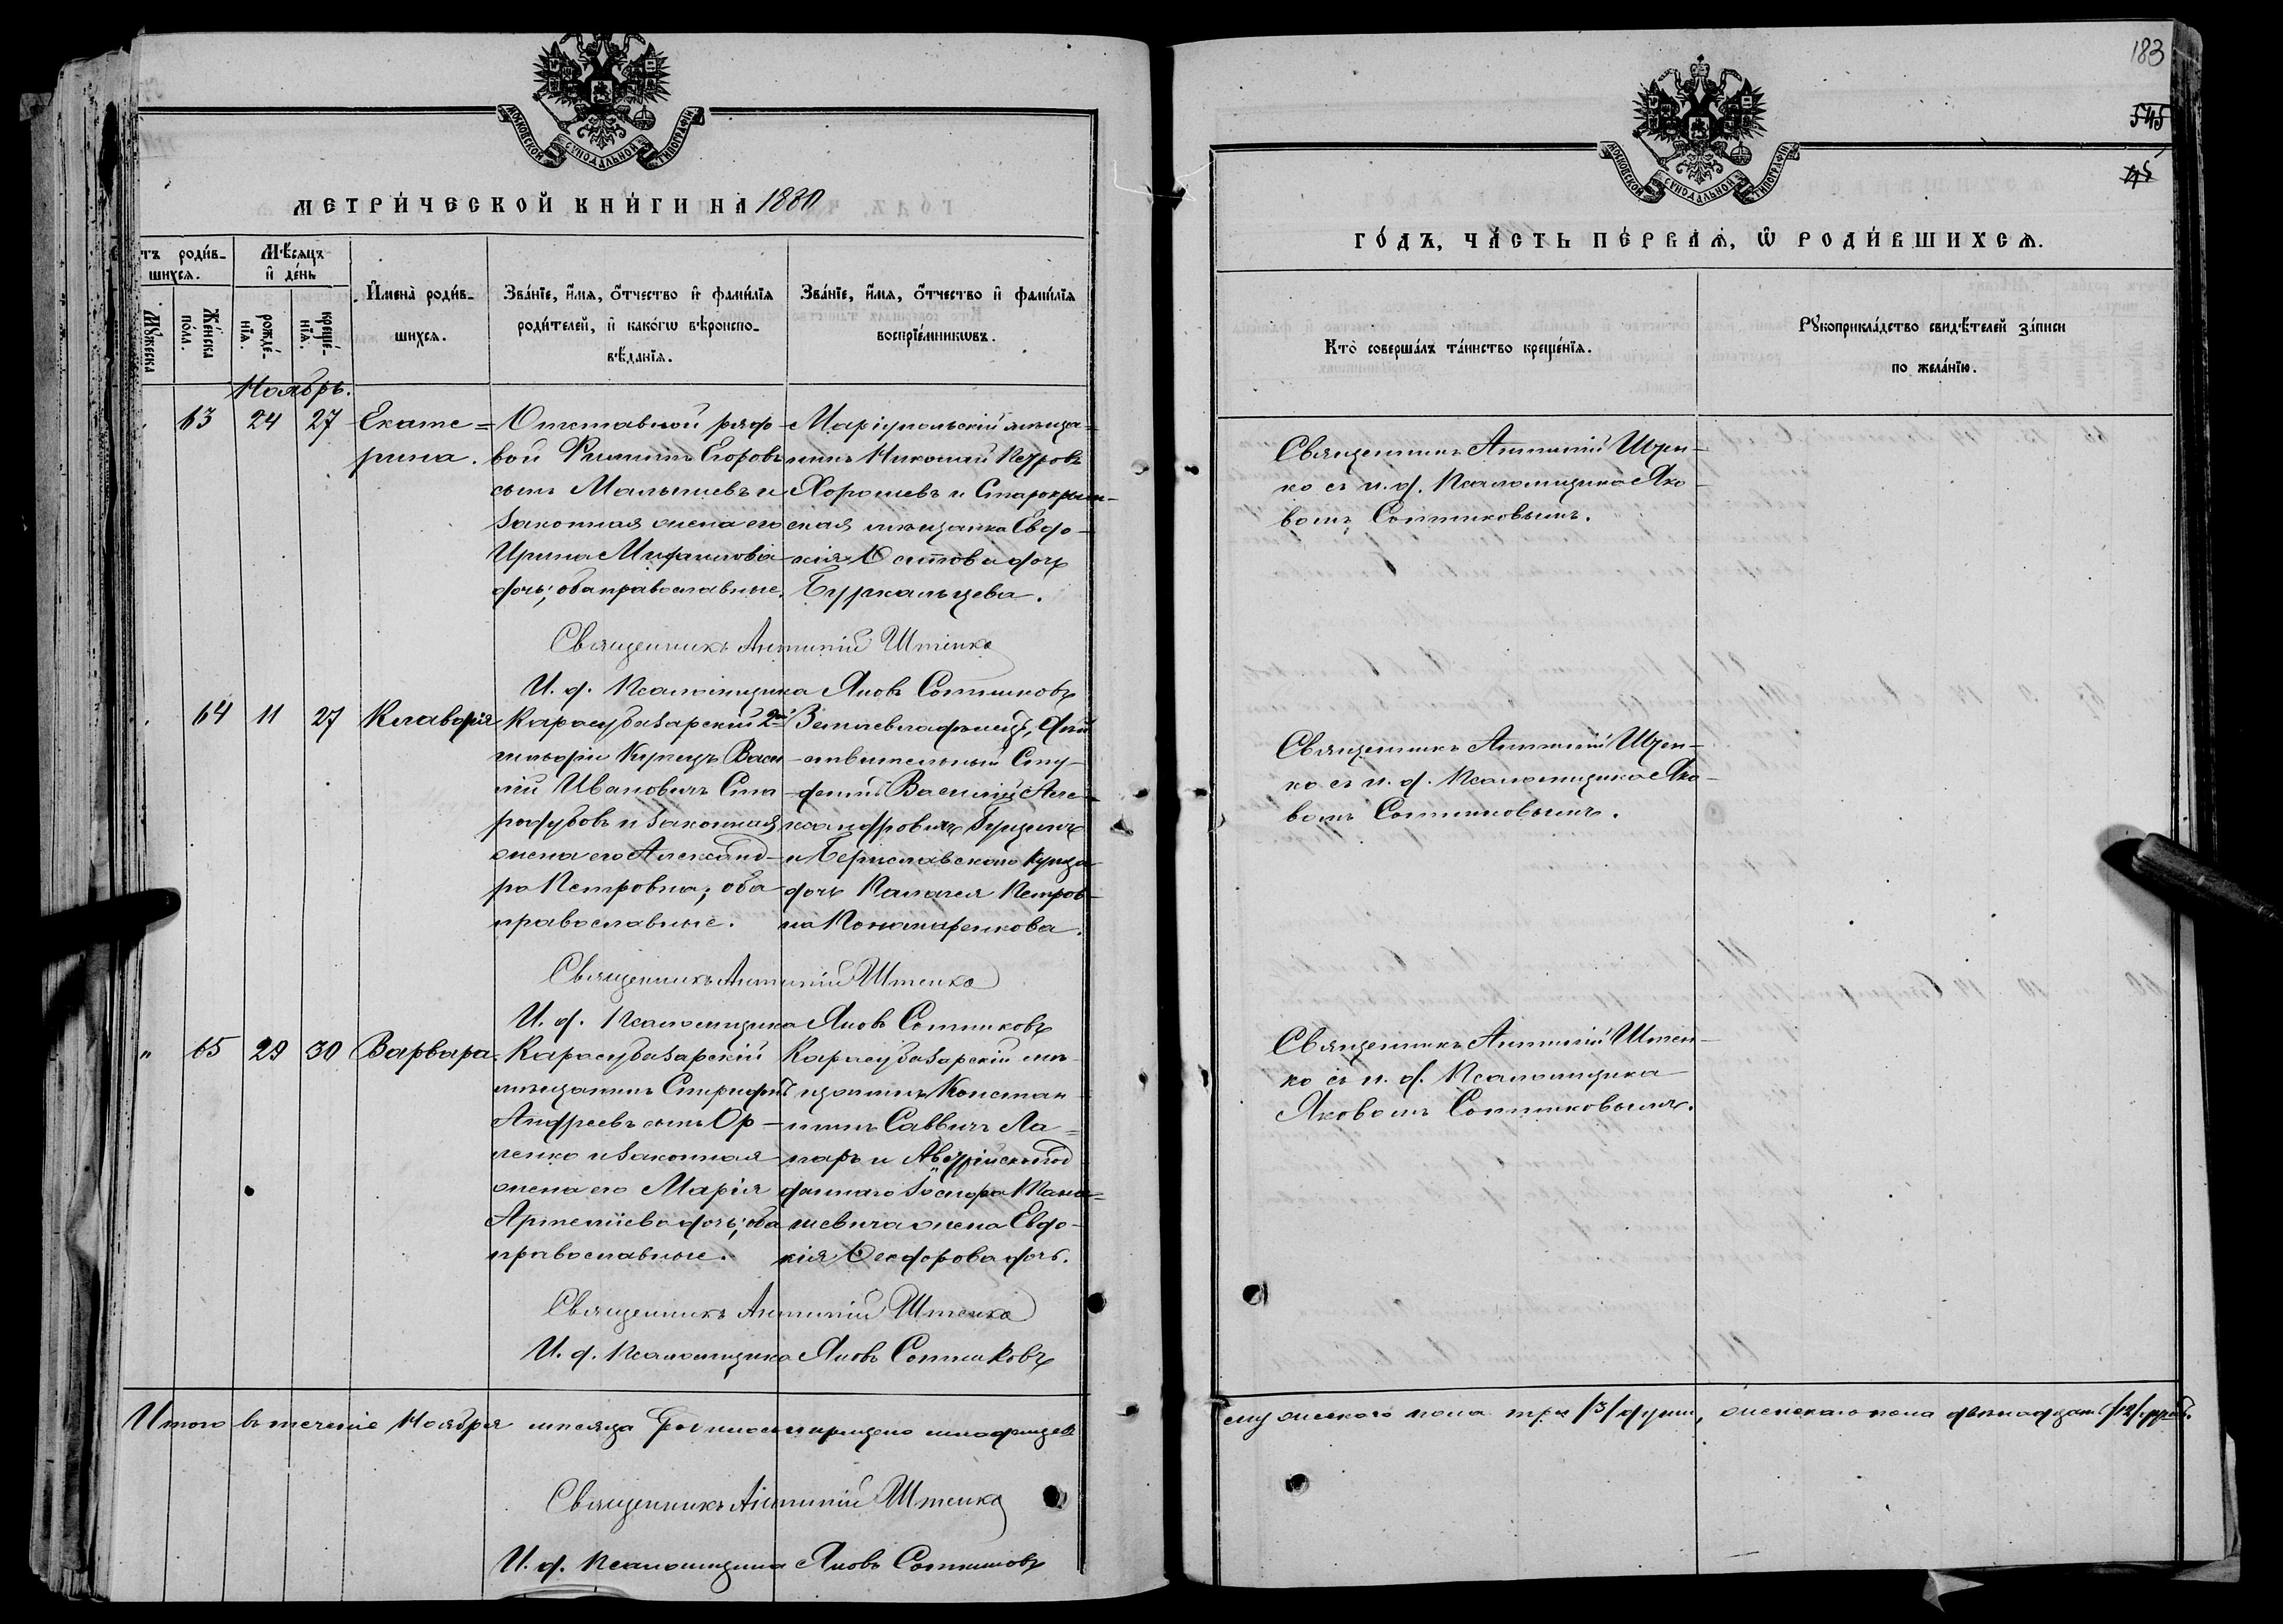 183
545
45
МОСКОВСКОЙ СУНОДАЛЬНОЙ ТИПОГРАФІИ
МОСКОВСКОЙ СУНОДАЛЬНОЙ ТИПОГРАФІИ
МЕТРИ́ЧЕСКОЙ КНИ́ГИ НА 1880
ГО́ДЪ, ЧА́СТЬ ПЕ́РВАЯ, Ѿ РОДИ́ВШИХСЯ.
тъ роди́в-
шихся.
Мужеска
Же́нска
по́ла.
Мѣ́сяцъ
и҆ де́нь
рожде́-
нїя.
креще́-
нїя.
И҆мена̀ роди́в-
шихся.
Зва́нїе, и҆́мя, ѻ҆́тчество и҆ фамі́лїя
роди́телей, и҆ како́гѡ вѣроиспо-
вѣ́данїя.
Зва́нїе, и҆́мя, ѻ҆́тчество и҆ фамі́лїя
воспрїе́мникѡвъ.
Кто̀ соверша́лъ та́инство креще́нїя.
Рꙋкоприкла́дство свидѣ́телей за́писи
по жела́нїю.
Ноябрь.
63 24 27 Екате=
рина.
Отставной рядо-
вой Филиппъ Егоровъ
сынъ Малышевъ и
законная жена его
Ирина Михаилова
дочь; оба православные.
Маріупольскій мѣща-
нинъ Николай Петровъ
Хорошевъ и Старокрым-
ская мѣщанка Евдо-
кія Осипова дочь
Буркальцева.
Священникъ Антоній
ко съ и. д. Псаломщика Яко-
вомъ Сотниковымъ.
Священникъ Антоній Штенко
И. д. Псаломщика Яковъ Сотниковъ
64 11 27 Клавдія
Карасубазарскій 2ой
гильдіи Купецъ Васи-
лій Ивановичъ Ста
родубовъ и законная
жена его Александ-
ра Петровна; оба
православные.
Землевладѣлецъ, дѣй
ствительный Сту-
дентъ Василій Але-
ксандровичъ
и Бериславскаго купца
дочь Пелагея Петров-
на Пономаренкова.
Священникъ Антоній
ко съ и. д. Псаломщика Яко-
вомъ Сотниковымъ.
Священникъ Антоній Штенко
И. д. Псаломщика Яковъ Сотниковъ
" 65 29 30 Варвара.
Карасубазарскій
мѣщанинъ Спиридонъ
Андреевъ сынъ Ор-
ленко и законная
жена его Марія
Артеміева дочь; оба
православные.
Карасубазарскій мѣ-
щанинъ Констан-
тинъ Саввичъ Ла-
паръ и Австрійскопод
даннаго
шевича жена Евдо-
кія Ѳеодорова дочь.
Священникъ Антоній Штен-
ко съ и. д. Псаломщика
Яковомъ Сотниковымъ.
Священникъ Антоній Штенко
И. д. Псаломщика Яковъ Сотниковъ
Итого въ теченіе Ноября мѣсяца родилось и крещено младенцевъ
мужескаго пола три /3/ души, женскаго пола двѣнадцать /12/ душъ.
Священникъ Антоній Штенко
И. д. Псаломщика Яковъ Сотниковъ